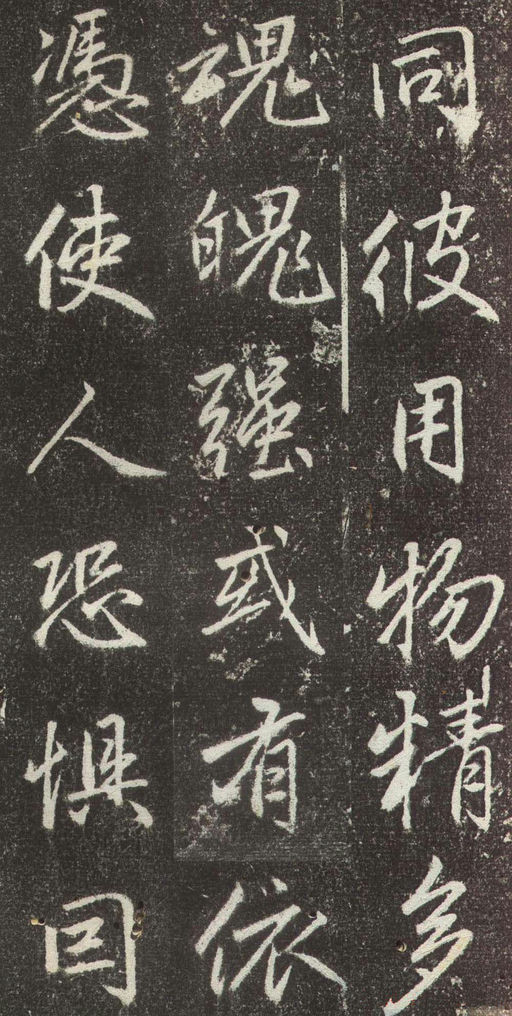 同彼用物精多
魂魄强或有依
憑使人恐懼曰